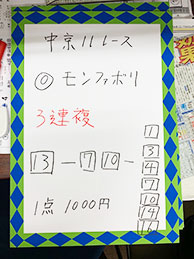 中京11レース
◎ モンファボリ
3連複
13 ― 7 10 ―
1
3
4
7
10
14
16
1点 1000円